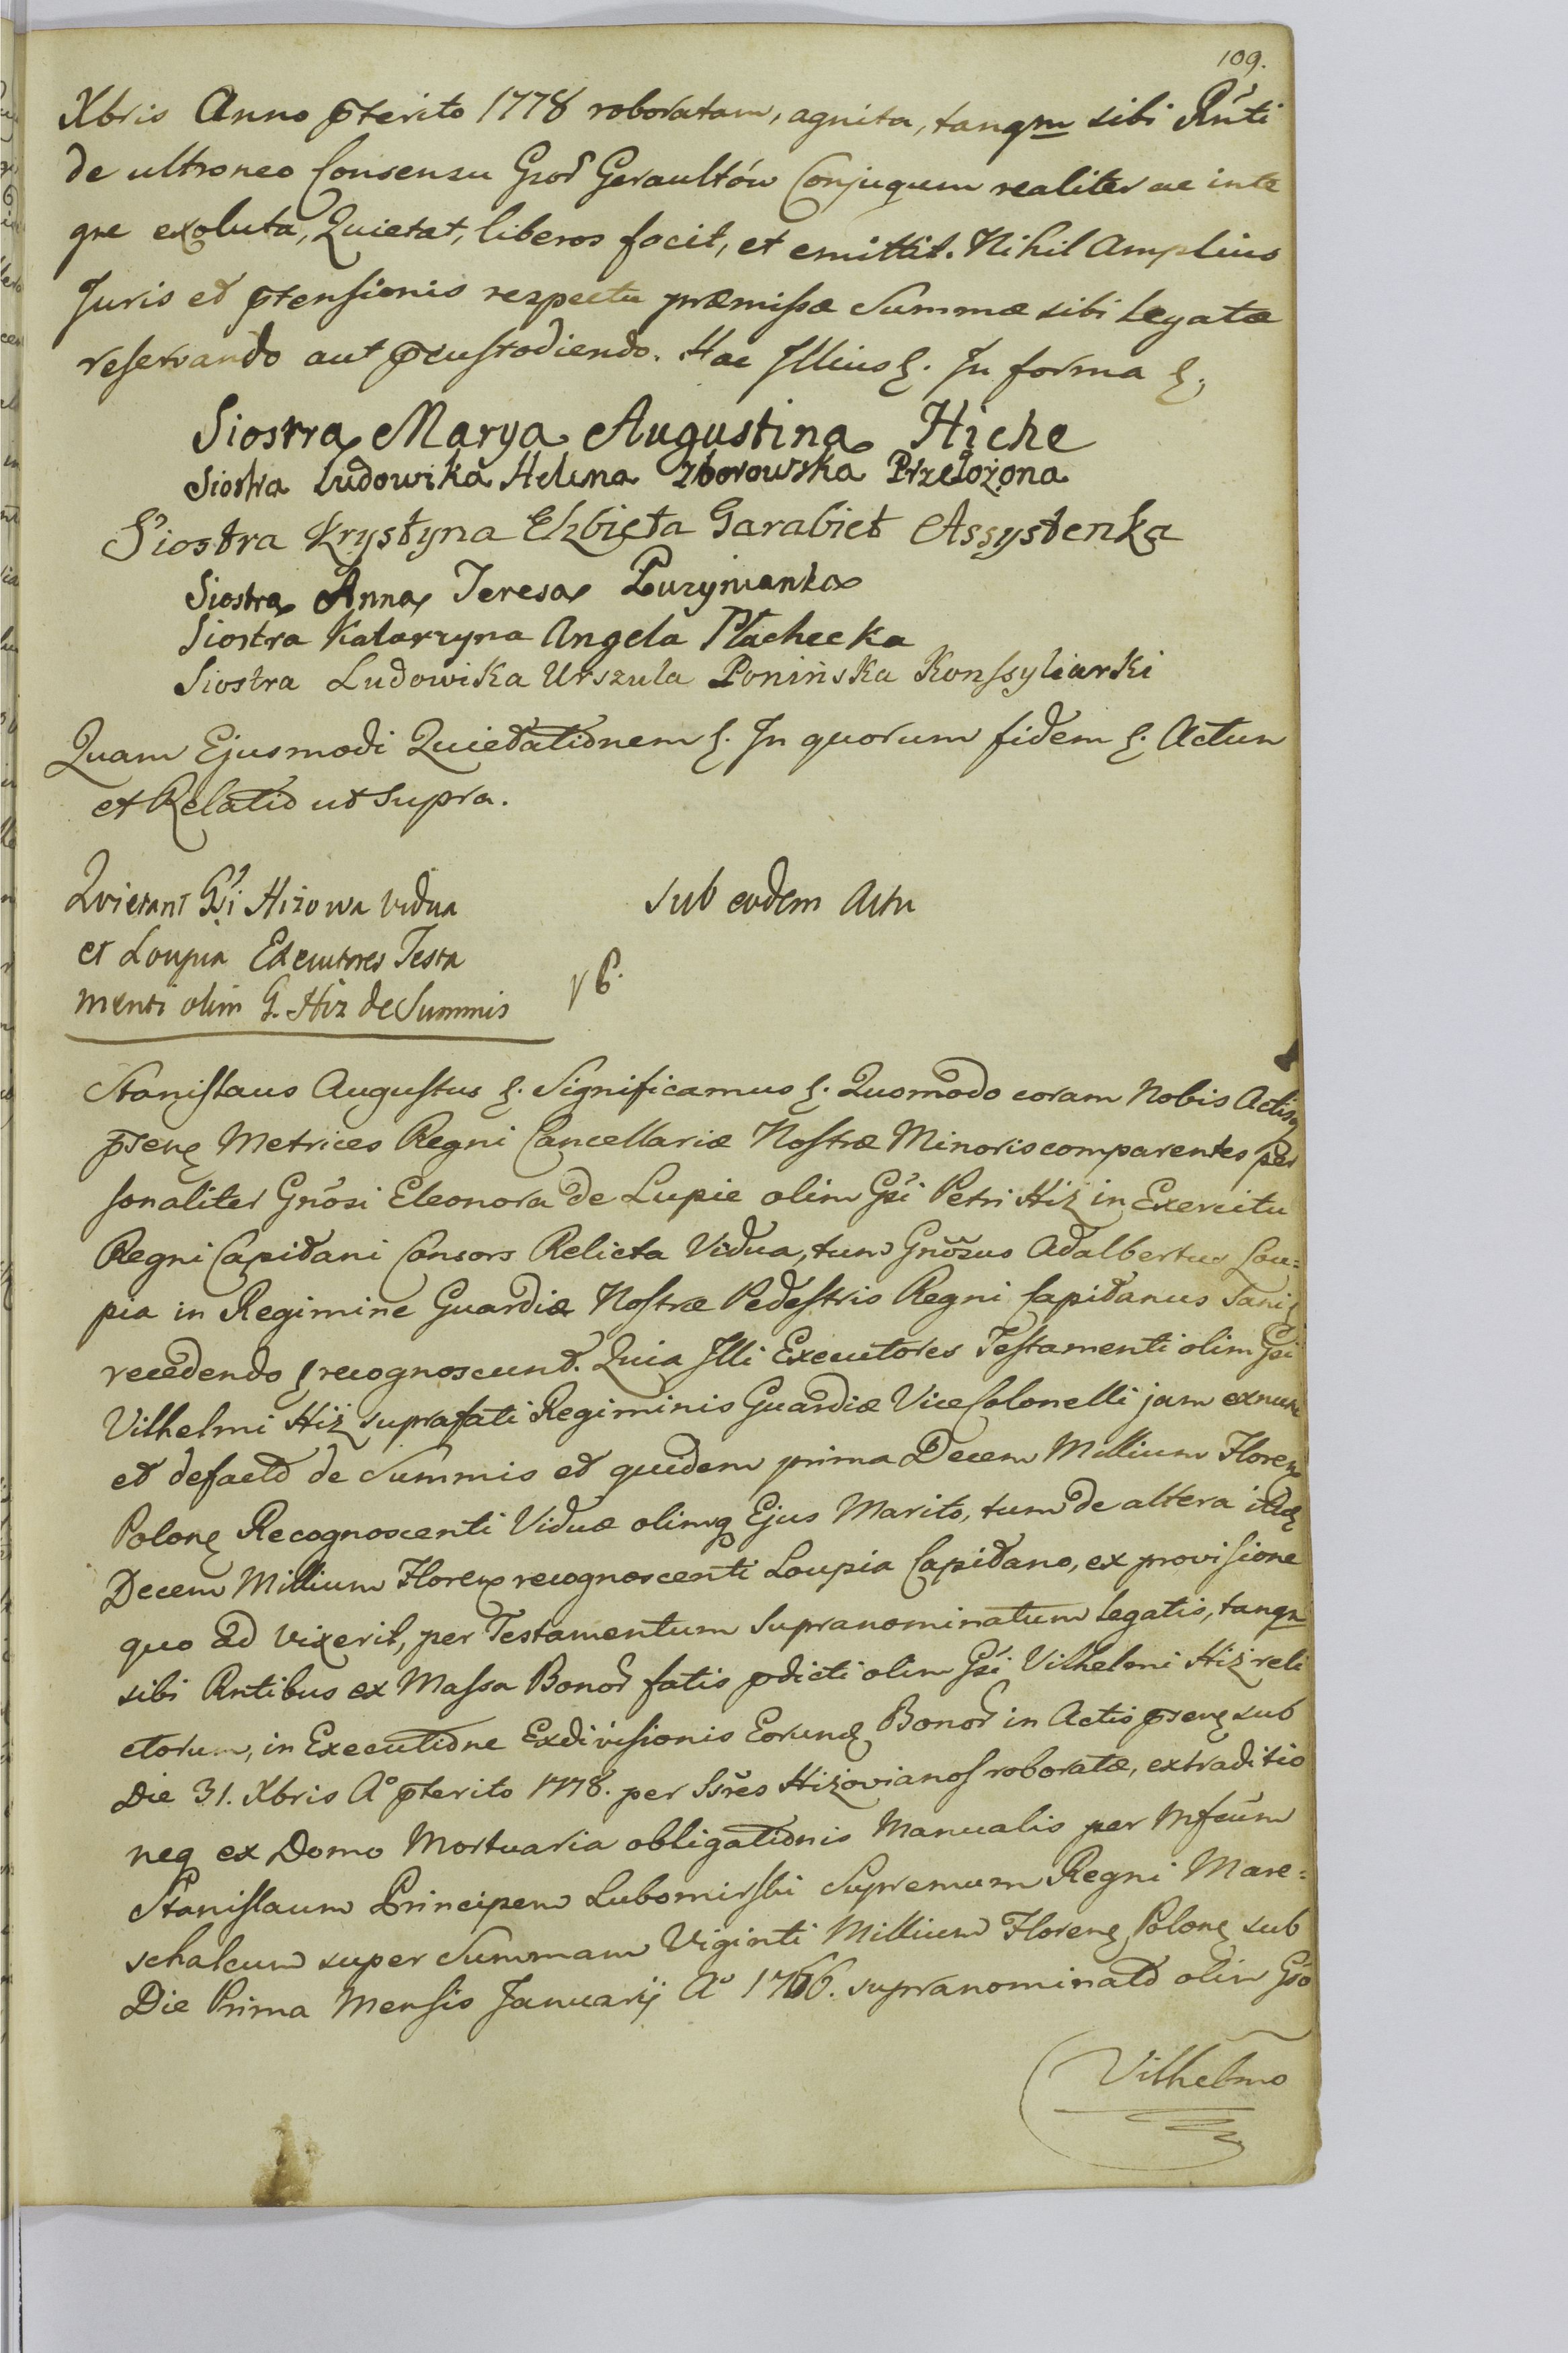 109.
Xbris Anno pterito 1778 roboratam, agnita, tanqm sibi Rńti
de ultroneo Consensu Gsor Geraultów Conjugum realiter ac inte
gre exoluta, Quietat, liberos facit, et emittit. Nihil Amplius
Juris et ptensionis respectu præmissæ Summæ sibi Legatæ
reservando aut pcustodiendo. Hac Illius §. In forma §;
Siostra Marya Augustina Hiche
Siostra Ludowika Helena Zborowska Przełożona
Siostra Krystyna Elzbieta Garabiet Assystenka
Siostra Anna Teresa Puzynianka
Siostra Katarzyna Angela Płachecka
Siostra Ludowika Urszula Ponińska Konssyliarki
Quam Ejusmodi Quietationem §. In quorum fidem §. Actum
et Relatio ut supra.
Quietant Gsi Hizowa vidua
et Loupia Executores Testa
menti olim G. Hiz de Summis
Sub eodem Actu
Stanislaus Augustus §. Significamus §. Quomodo coram Nobis Actisq
psen Metrices Regni Cancellariæ Nostræ Minoris comparentes per
sonaliter Gnosi Eleonora de Lupie olim Gsi Petri Hiz in Exercitu
Regni Capitani Consors Relicta Vidua, tum Gnosus Adalbertus Lou=
pia in Regimine Guardiæ Nostræ Pedestris Regni Capitanus Sani
recedendo § recognoscunt. Quia Illi Executores Testamenti olim Gsi
Vilhelmi Hiz suprafati Regiminis Guardiæ Vice Colonelli jam exnunc
et defacto de Summis et quidem prima Decem Millium Floren
Polon Recognoscenti Viduæ olimq Ejus Marito, tum de altera itid
Decem Millium Floren recognoscenti Loupia Capitano, ex provisione
quo ad vixerit, per Testamentum supranominatum legatis, tanqm
sibi Rntibus ex Massa Bonor fatis pdicti olim Gsi Vilhelmi Hiz reli
ctorum, in Executione Exdivisionis Eorund Bonor in Actis psen sub
Die 31. Xbris Aº pterito 1778. per Ssres Hizovianos roboratæ, extraditio
neq ex Domo Mortuaria obligationis Manualis per Mfcum
Stanislaum Principem Lubomirski Supremum Regni Mare=
schalcum super Summam Viginti Millium Floren Polon sub
Die Prima Mensis Januarij Aº 1766. supranominato olim Gso
Vilhelmo